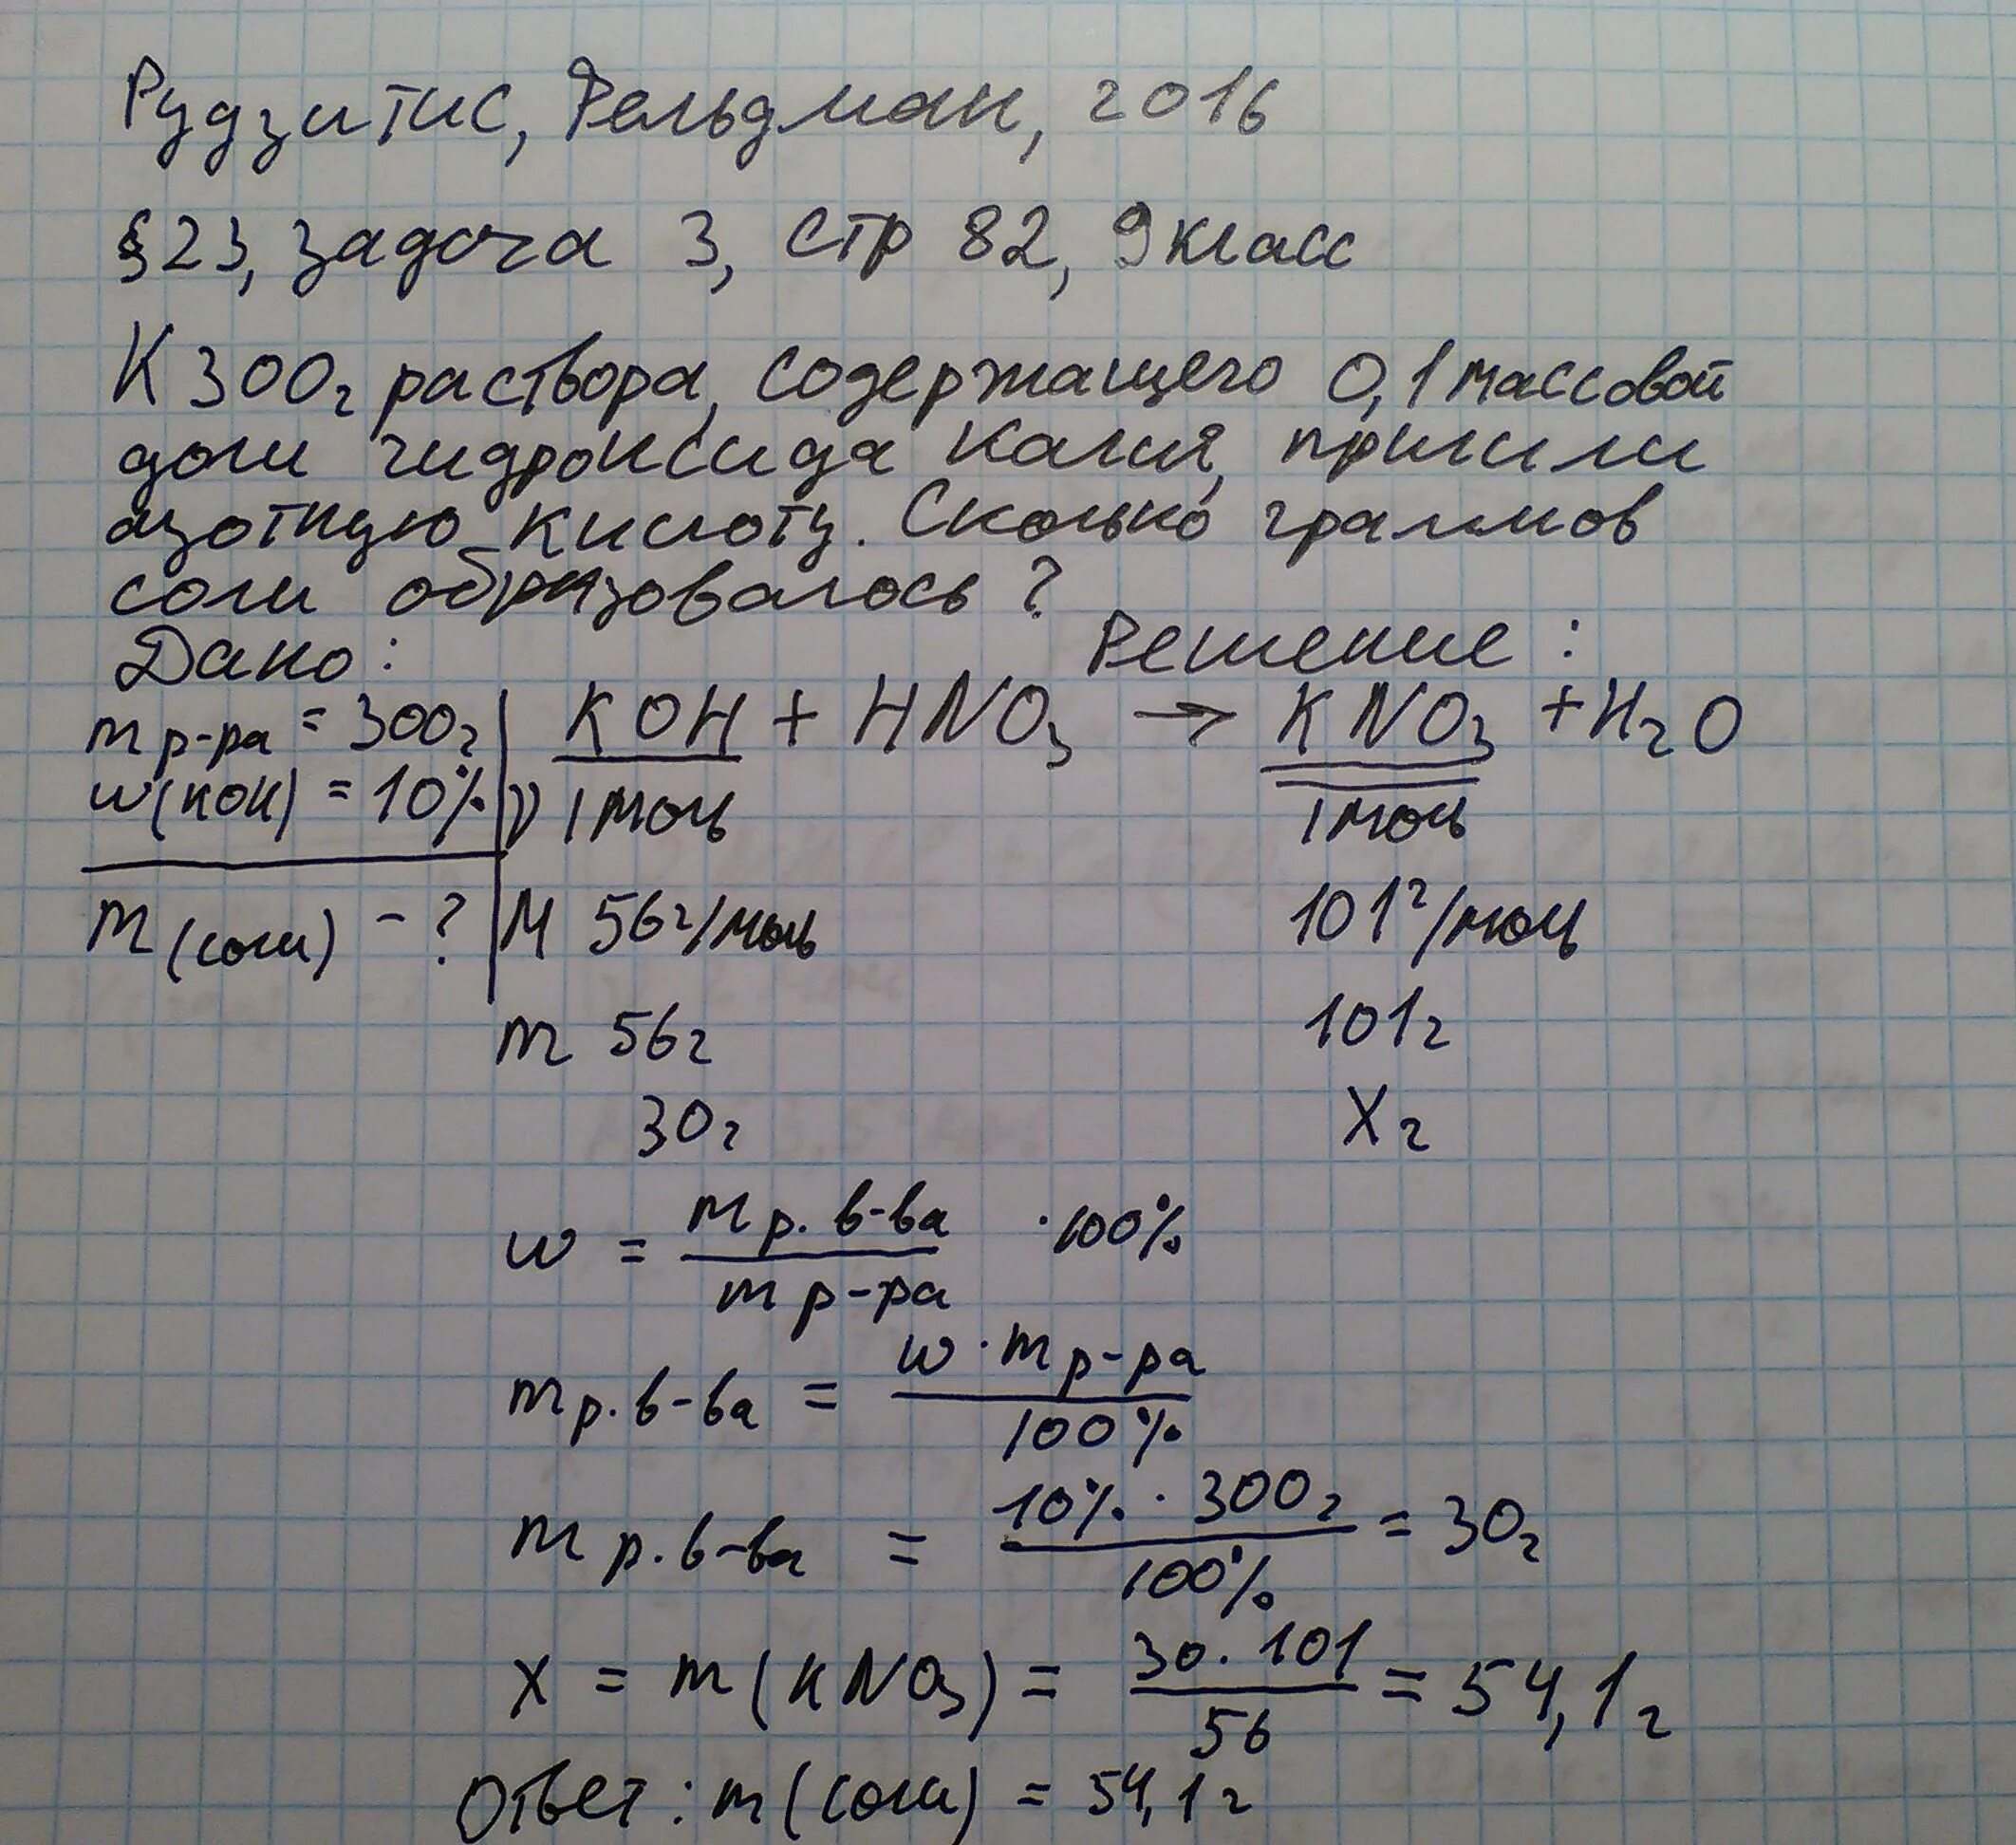 Рудзитис, Фельдман, 2016
§23, задача 3, стр 82, 9 класс
К 300г раствора, содержащего 0,1 массовой
доли гидроксида калия, прилили
азотную кислоту. Сколько граммов
соли образовалось?
Дано:
Решение:
m р-ра = 300г
KOH + HNO₃ → KNO₃ + H₂O
w(KOH) = 10%
ν 1моль 1моль
m(соли) - ?
M 56г/моль 101г/моль
m 56г 101г
30г Xг
w = m р. в-ва / m р-ра · 100%
m р. в-ва = w · m р-ра / 100%
m р. в-ва = 10% · 300г / 100% = 30г
X = m(KNO₃) = 30 · 101 / 56 = 54,1г
Ответ: m(соли) = 54,1г